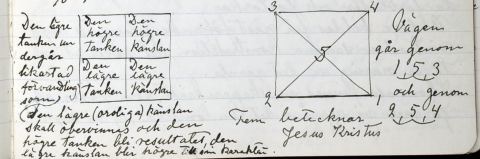 Den lägre
tanken un
dergår
likartad
förvandling
som
Den högre Tanken
Den högre känslan
Den lägre Tanken
Den lägre känslan
(Den lägre (oroliga) känslan
skall övervinnas och den
högre tanken bli resultatet, den
lägre känslan blir högre till sin karaktär.
3 4
5
2 1
Fem betecknar
Jesus Kristus
Vägen
går genom
1 5 3
och genom
2 5 4